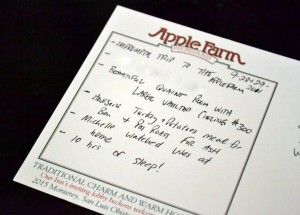 Apple Farm
9-28-22
- IMPROMPTU TRIP TO THE APPLEFARM INN
- BEAUTIFUL QUAINT ROOM WITH
LARGE VAULTED CEILINGS #300
- Turkey & Potatoes meal for
Ben & Pot Roast for Ash
- Michelle watched kids at
home
- 10 hrs of sleep!
TRADITIONAL CHARM AND WARM HO
Our Inn's inviting lobby beckons welcom
2015 Monterey, San Luis Obisp